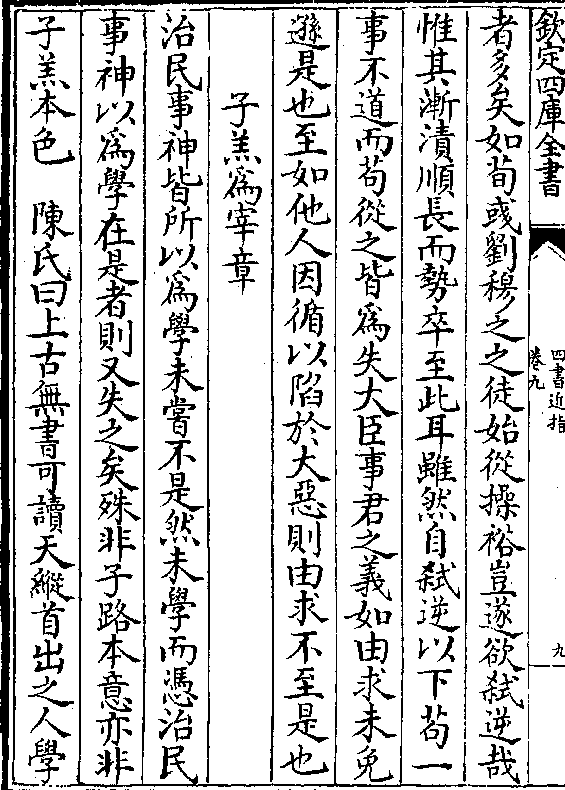 欽定四庫全書
四書近指
卷九
九
者多矣如荀彧劉穆之之徒始從操裕豈遂欲弑逆哉
惟其漸漬順長而勢卒至此耳雖然自弑逆以下苟一
事不道而苟從之皆爲失大臣事君之義如由求未免
遜是也至如他人因循以陷於大惡則由求不至是也
子羔爲宰章
治民事神皆所以爲學未嘗不是然未學而憑治民
事神以爲學在是者則又失之矣殊非子路本意亦非
子羔本色　陳氏曰上古無書可讀天縱首出之人學